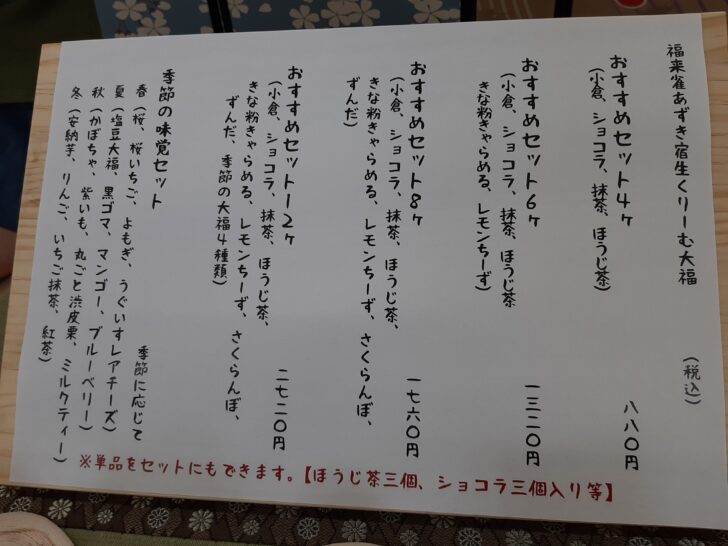 福来雀あずき宿生くりーむ大福
（税込）
おすすめセット４ヶ
（小倉、ショコラ、抹茶、ほうじ茶）
八八〇円
おすすめセット６ヶ
（小倉、ショコラ、抹茶、ほうじ茶
きな粉きゃらめる、レモンちーず）
一三二〇円
おすすめセット８ヶ
（小倉、ショコラ、抹茶、ほうじ茶、
きな粉きゃらめる、レモンちーず、さくらんぼ、
ずんだ）
一七六〇円
おすすめセット１２ヶ
（小倉、ショコラ、抹茶、ほうじ茶、
きな粉きゃらめる、レモンちーず、さくらんぼ、
ずんだ、季節の大福４種類）
二七二〇円
季節の味覚セット
季節に応じて
春（桜、桜いちご、よもぎ、うぐいすレアチーズ）
夏（塩豆大福、黒ゴマ、マンゴー、ブルーベリー）
秋（かぼちゃ、紫いも、丸ごと渋皮栗、ミルクティー）
冬（安納芋、りんご、いちご抹茶、紅茶）
※単品をセットにもできます。【ほうじ茶三個、ショコラ三個入り等】